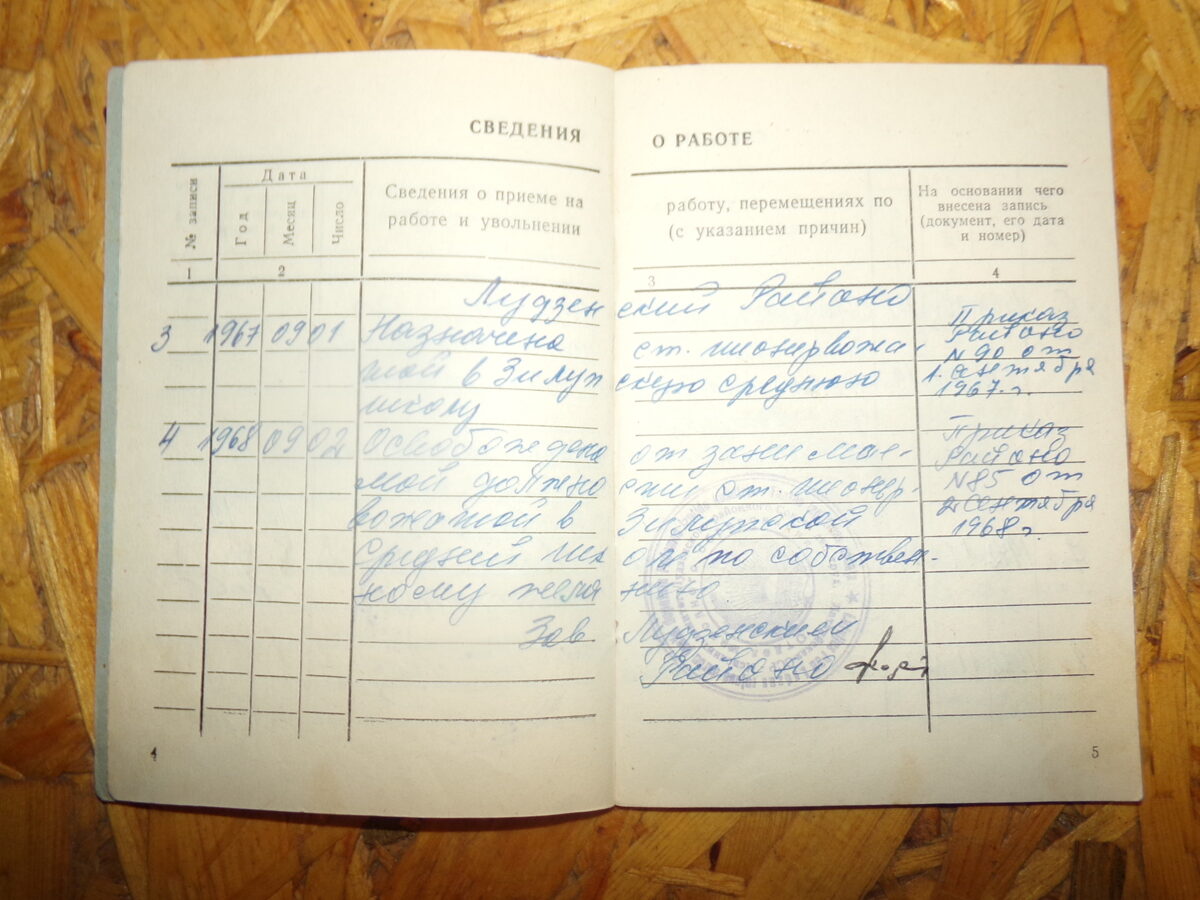 СВЕДЕНИЯ О РАБОТЕ
№ записи
Дата
Год
Месяц
Число
Сведения о приеме на работу, перемещениях по
работе и увольнении (с указанием причин)
На основании чего
внесена запись
(документ, его дата
и номер)
1 2 3 4
Лудзенский Районо
3 1967 09 01 Назначена ст. пионервожа-
той в Зилупскую среднюю
школу
Приказ
Районо
N 90 от
1. Сентября
1967 г.
4 1968 09 02 Освобождена от занимае-
мой должности ст. пионер-
вожатой в Зилупской
средней школе по собствен-
ному желанию.
Приказ
Районо
N 85 от
2. Сентября
1968 г.
Зав Лудзенским
Районо
4
5